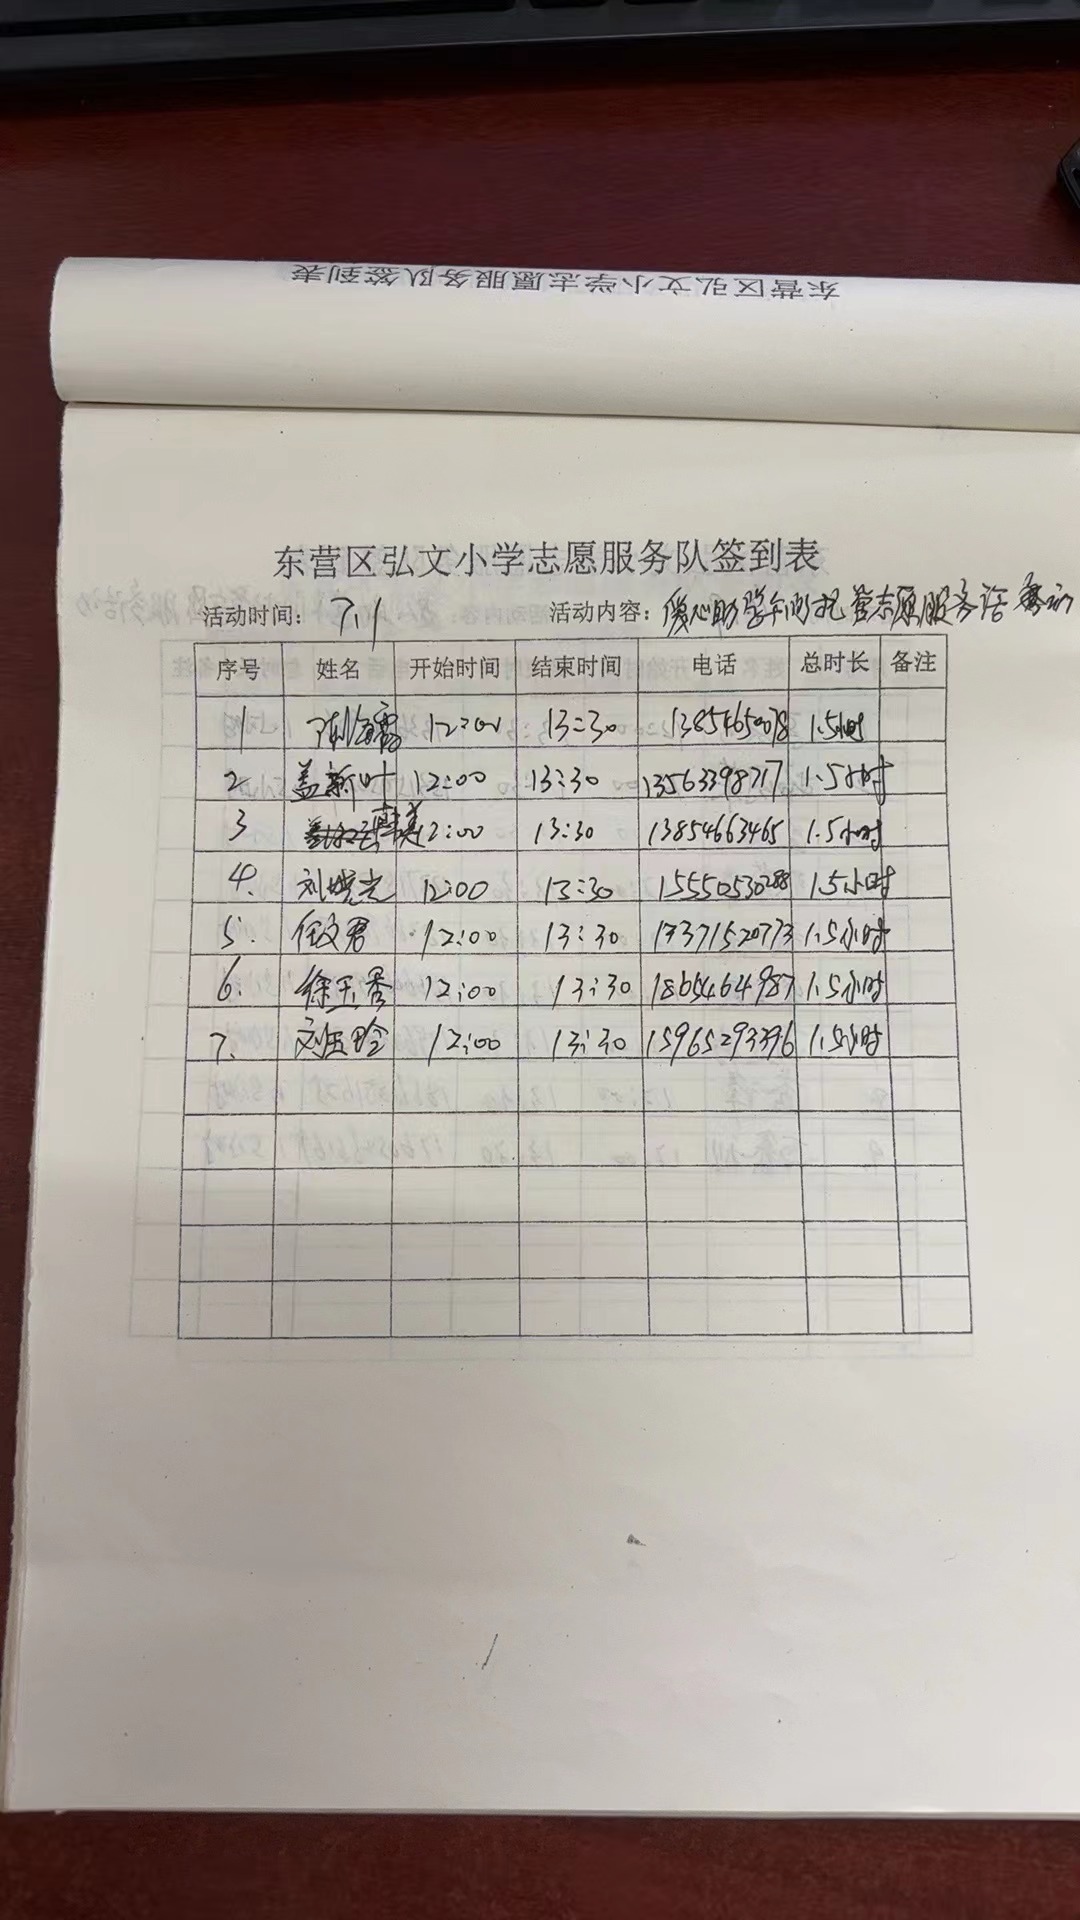 东营区弘文小学志愿服务队签到表
东营区弘文小学志愿服务队签到表
活动时间: 7.1 活动内容: 爱心助学午间托管志愿服务活动
序号 姓名 开始时间 结束时间 电话 总时长 备注
1 12:00 13:30 13854650078 1.5小时
2 盖新叶 12:00 13:30 13563398717 1.5小时
3 12:00 13:30 13854663465 1.5小时
4. 刘晓光 12:00 13:30 15550530288 1.5小时
5. 任文君 12:00 13:30 13371520773 1.5小时
6. 徐玉香 12:00 13:30 18654464987 1.5小时
7. 12:00 13:30 15965293396 1.5小时